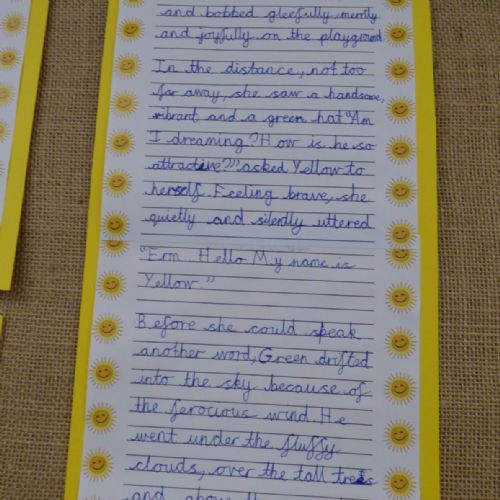 and bobbed gleefully, merrily
and joyfully on the playground
In the distance, not too
far away, she saw a handsome,
vibrant and a green hat "Am
I dreaming? How is he so
attractive?" asked Yellow to
herself. Feeling brave, she
quietly and silently uttered
"Erm.. Hello My name is
Yellow "
Before she could speak
another word, Green drifted
into the sky because of
the ferocious wind. He
went under the fluffy
clouds, over the tall trees
and